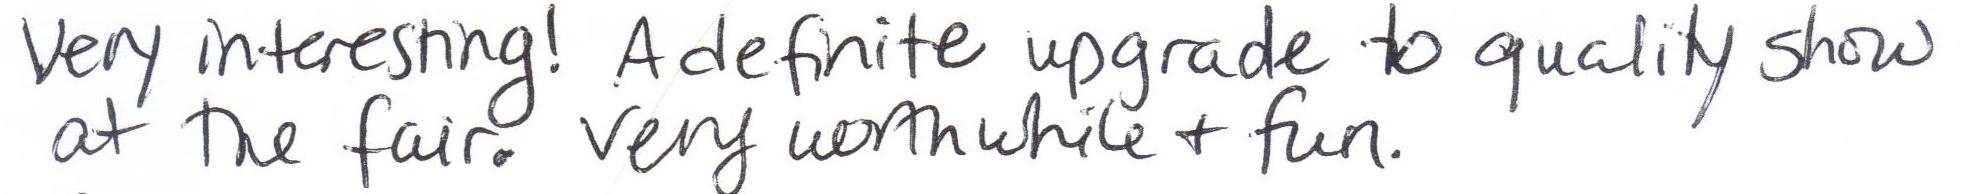 Very interesting! A definite upgrade to quality show
at the fair. Very worthwhile + fun.